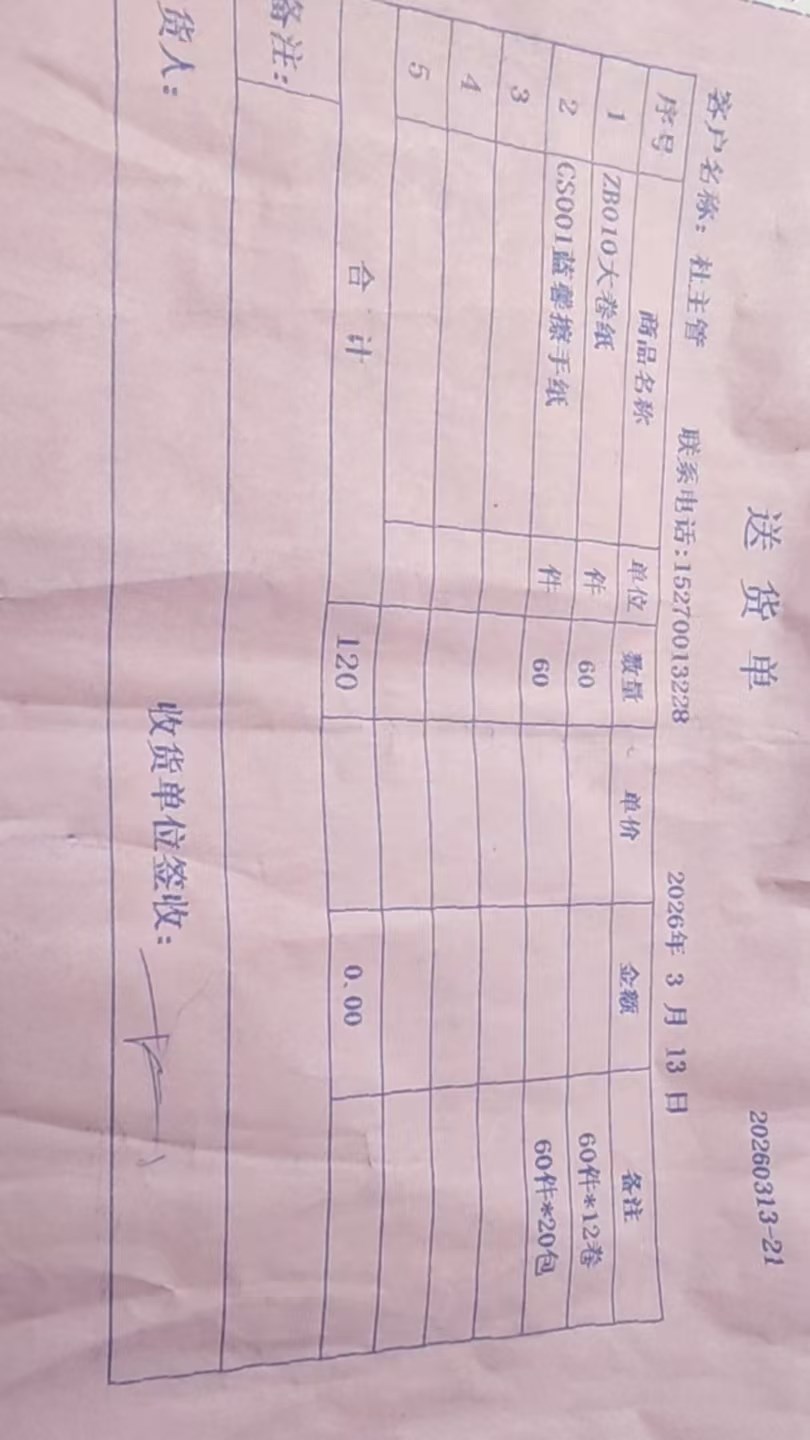 送 货 单
20260313-21
客户名称: 杜主管 联系电话:15270013228 2026年 3 月 13 日
序号 商品名称 单位 数量 单价 金额 备注
1 ZB010大卷纸 件 60 60件*12卷
2 CS001蓝馨擦手纸 件 60 60件*20包
3
4
5
合 计 120 0.00
备注:
货人: 收货单位签收: